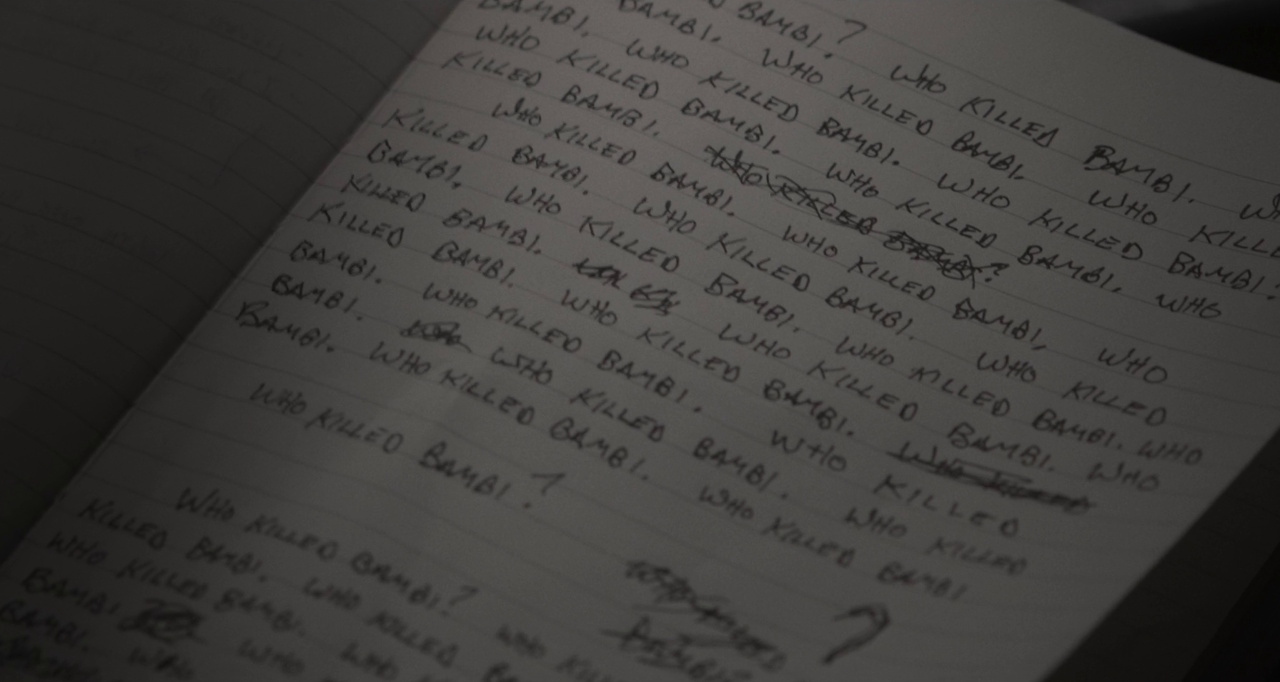 BAMBI? WHO KILLED BAMBI.
BAMBI. WHO KILLED BAMBI. WHO KILL
BAMBI. WHO KILLED BAMBI. WHO KILLED BAMBI?
WHO KILLED BAMBI. WHO KILLED BAMBI. WHO
KILLED BAMBI. WHO KILLED BAMBI?
WHO KILLED BAMBI. WHO KILLED BAMBI, WHO
KILLED BAMBI. WHO KILLED BAMBI. WHO KILLED
BAMBI. WHO KILLED BAMBI. WHO KILLED BAMBI. WHO
KILLED BAMBI. WHO KILLED BAMBI. WHO
KILLED BAMBI. WHO KILLED BAMBI. WHO KILLED
BAMBI. WHO KILLED BAMBI. WHO KILLED
BAMBI. WHO KILLED BAMBI. WHO KILLED
BAMBI. WHO KILLED BAMBI. WHO KILLED BAMBI
WHO KILLED BAMBI?
?
WHO KILLED BAMBI? WHO
KILLED BAMBI. WHO KILLED
WHO KILLED BAMBI. WHO
BAMBI WHO
BAMBI. WHO